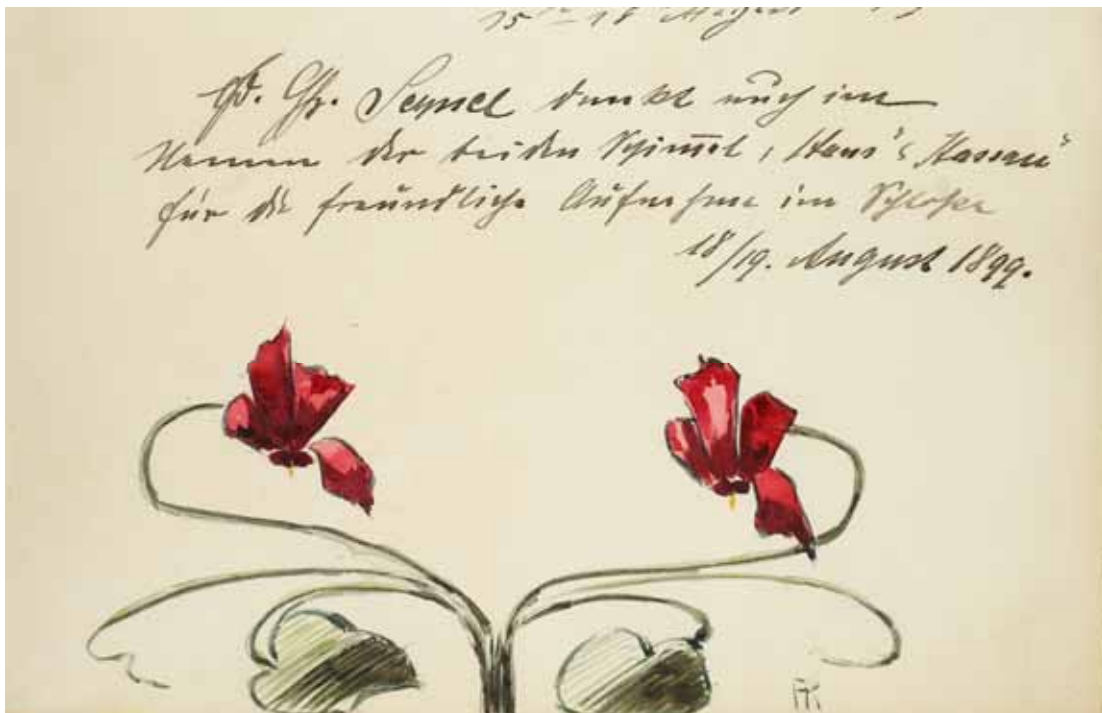 15 18
Seyssel dankt auch im
Namen der beiden Schimmel, „Hans“ &
für die freundliche Aufnahme im Schlosse
18/19. August 1899.